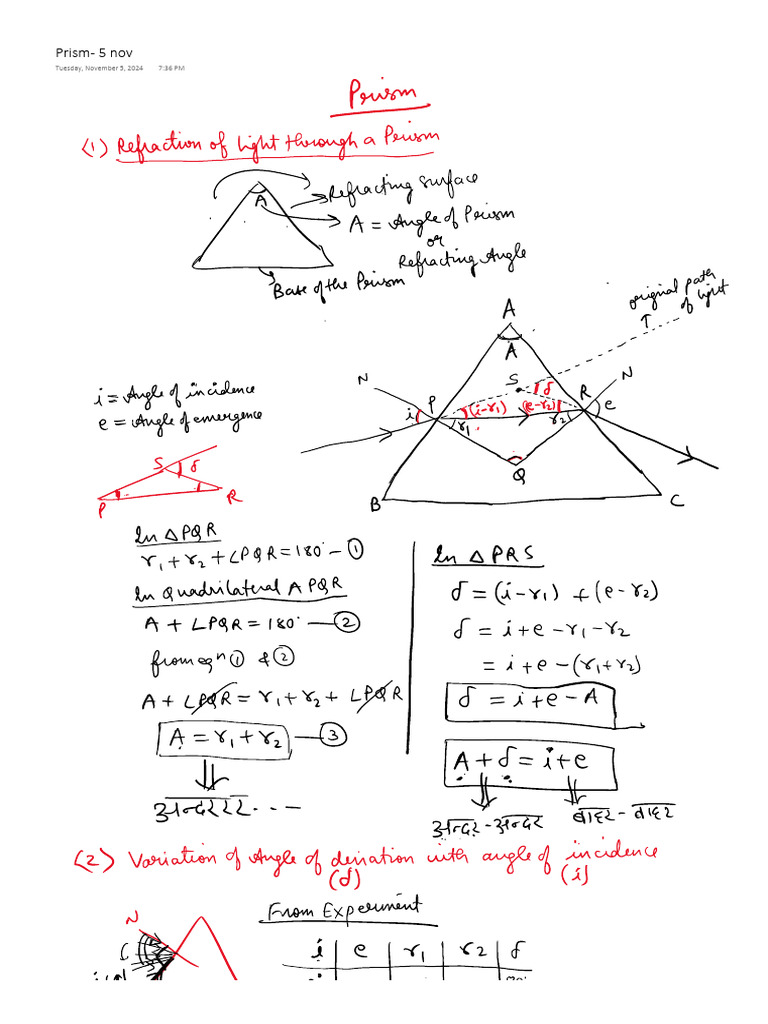 Prism- 5 nov
Tuesday, November 5, 2024 7:36 PM
Prism
(1) Refraction of Light through a Prism
A
Refracting Surface
A = Angle of Prism
or
Refracting Angle
Base of the Prism
original path
of light
A
A
S
δ
N
N
i = Angle of incidence
e = Angle of emergence
i
P
(i-r1)
(e-r2)
R
e
r1
r2
Q
B
C
S
δ
P
R
In △PQR
r1+r2+∠PQR=180° - ①
In Quadrilateral APQR
A + ∠PQR = 180° - ②
from eqn ① & ②
A + ∠PQR = r1+r2+ ∠PQR
A = r1+r2 - ③
अन्दररर...
In △PRS
δ = (i-r1) + (e-r2)
δ = i+e-r1-r2
= i+e-(r1+r2)
δ = i+e-A
A+δ = i+e
अन्दर-अन्दर बाहर-बाहर
(2) Variation of Angle of deviation with angle of incidence
(δ) (i)
From Experiment
N
i e r1 r2 δ